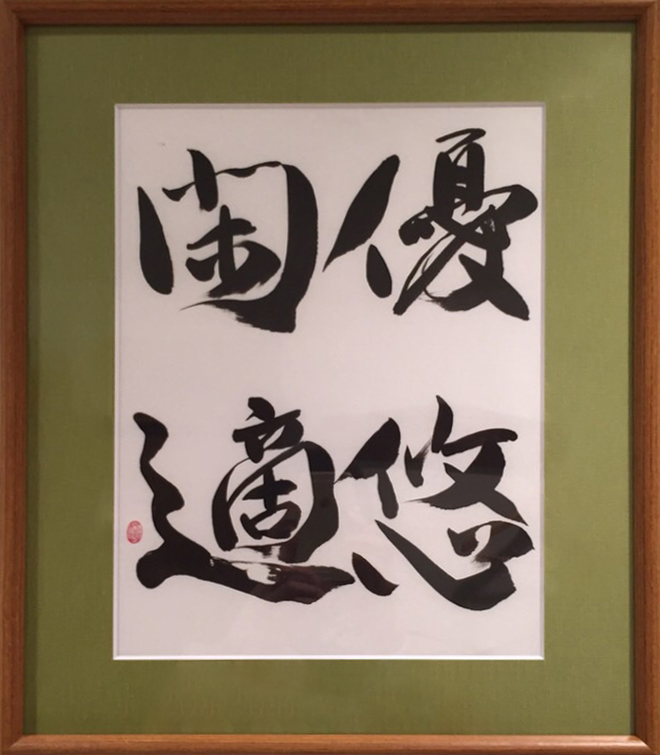 優悠
閑適